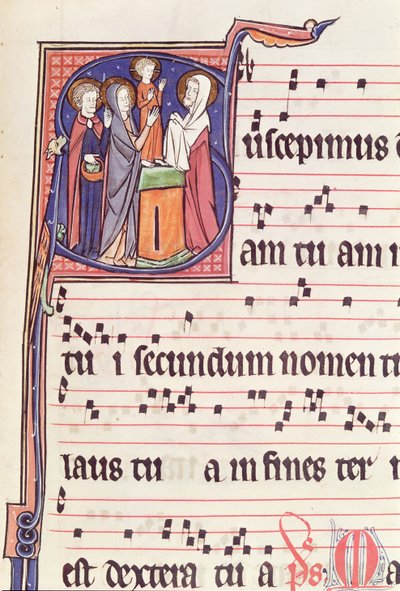 Suscepimus d
am tu am in
tu i secundum nomen tu
laus tu a in fines ter r
est dextera tu a ps. Ma